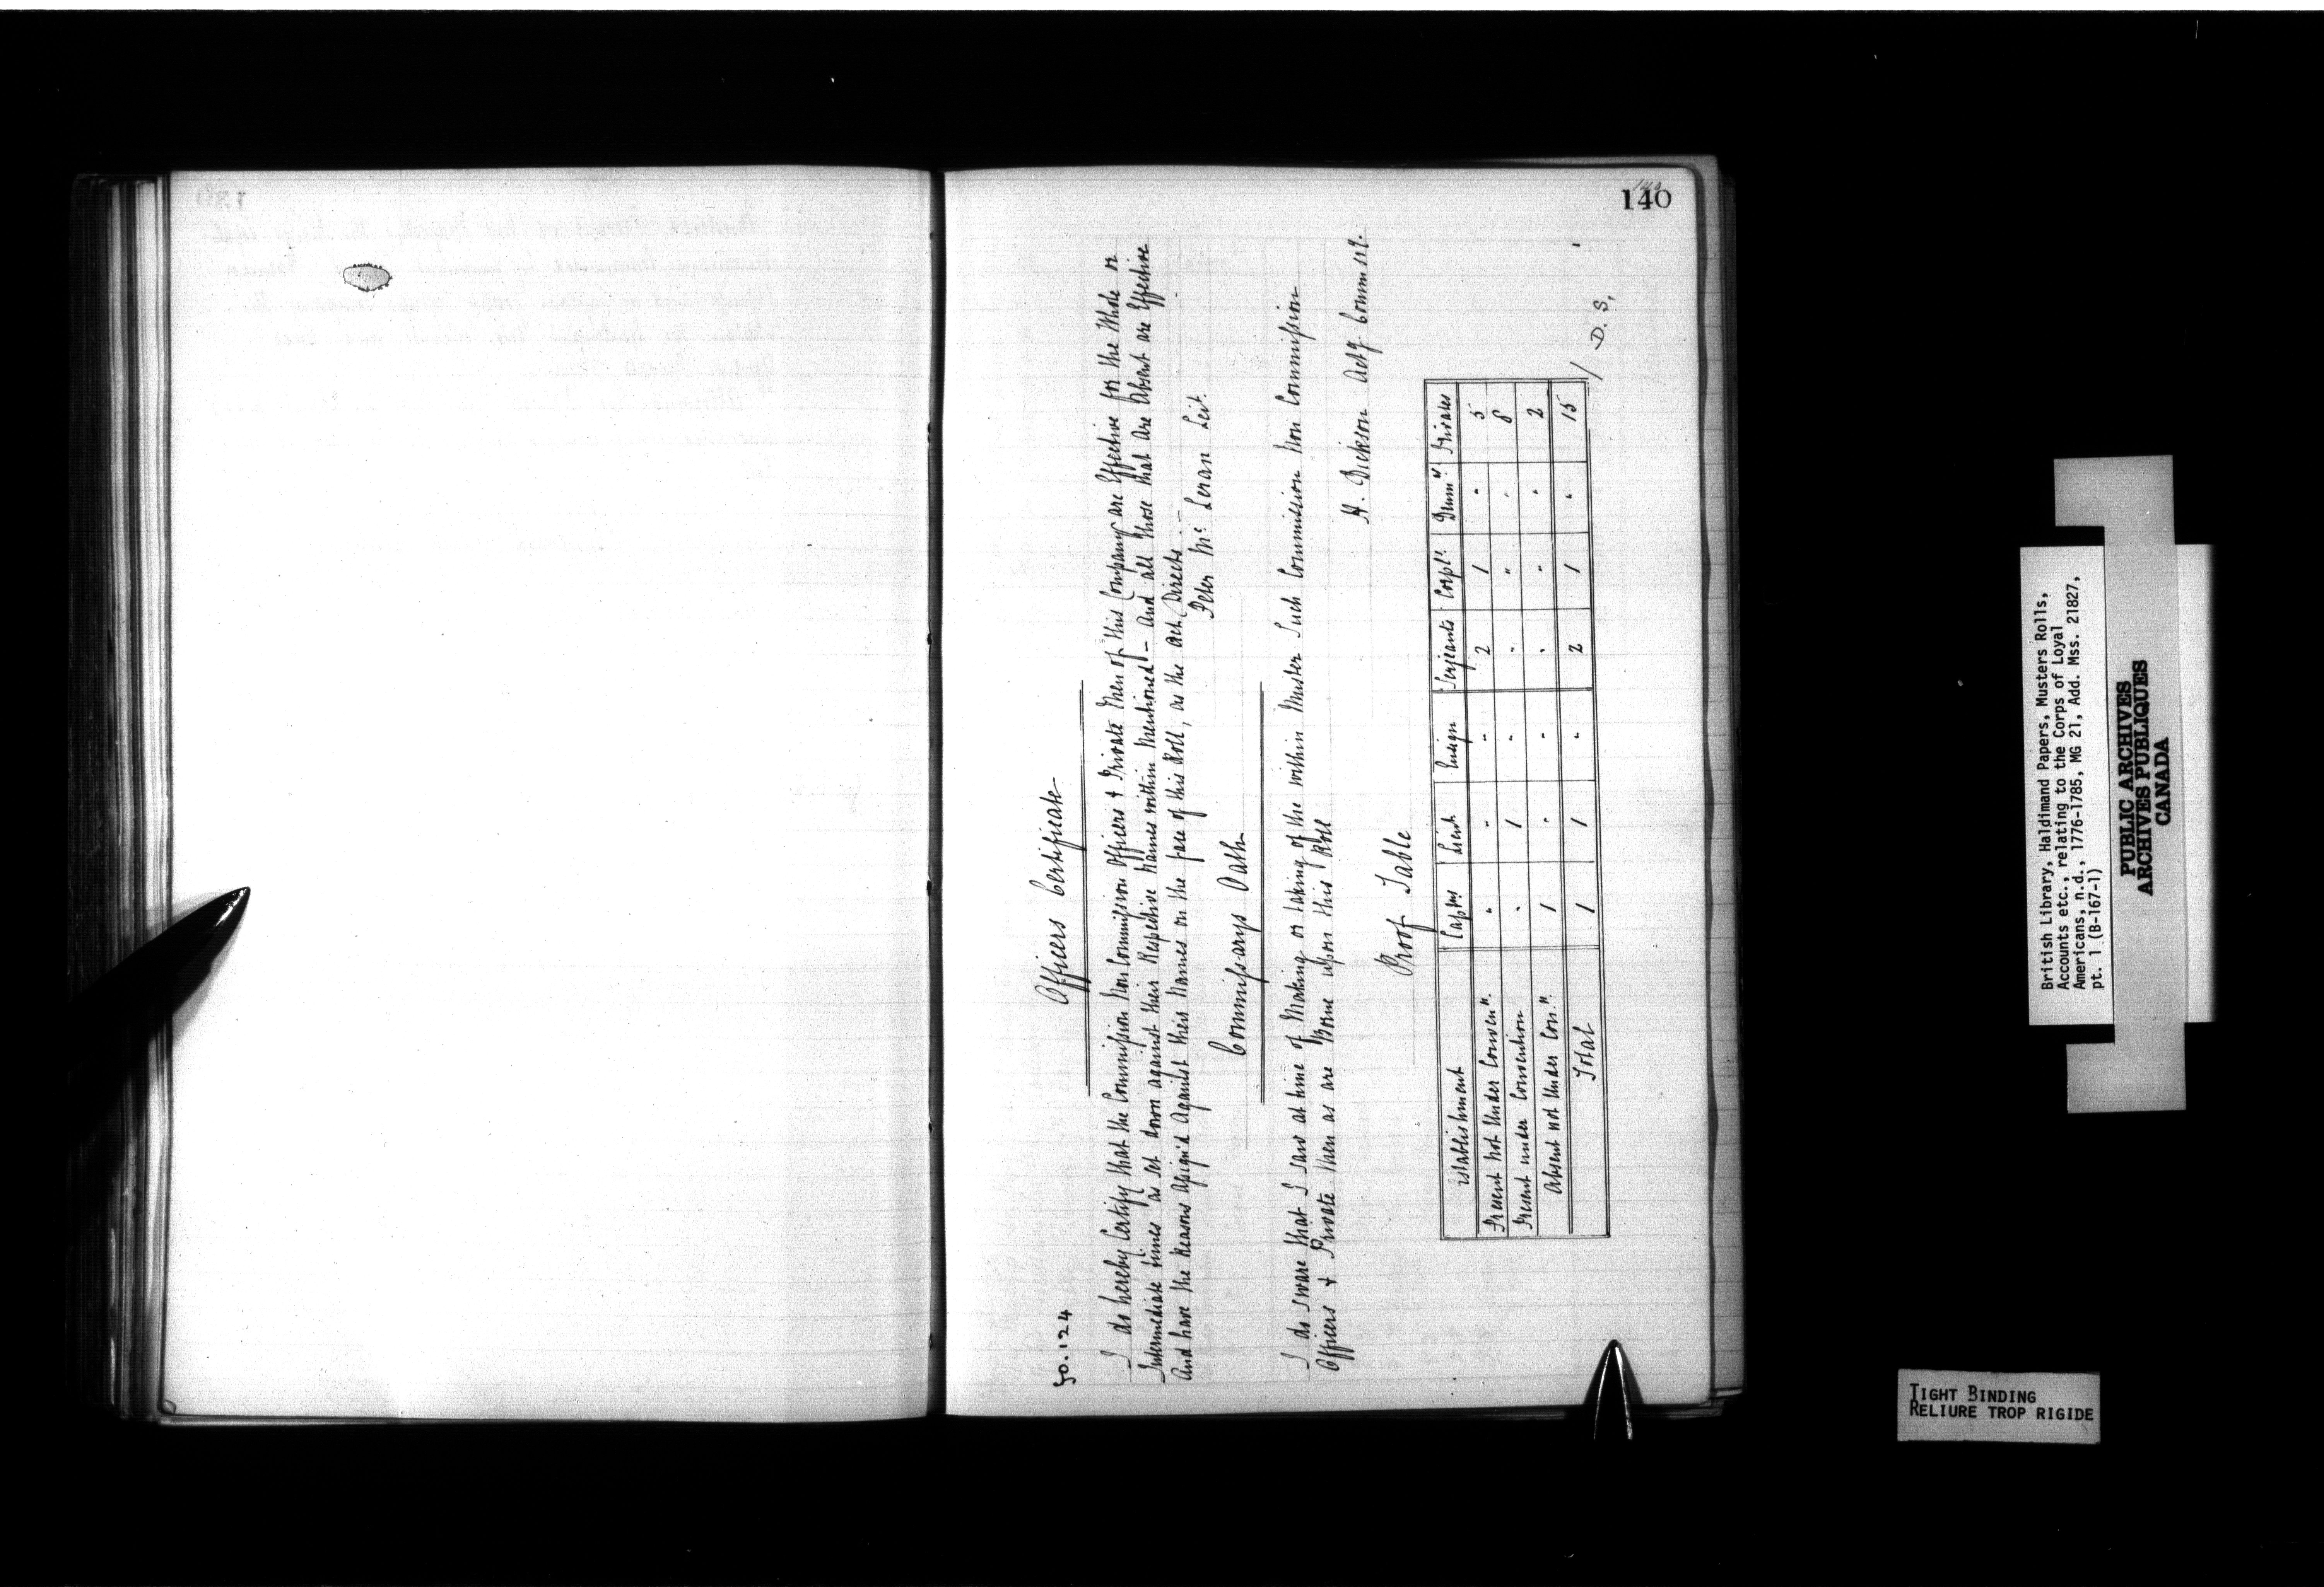 140
fo. 124
Officers Certificate
I do hereby Certify that the Commission Non Commission Officers & Private Men of this Company are Effective for the Whole or
Intermediate times as set down against their Respective Names within Mentioned - And all those that are Absent are Effective
And have the Reasons Assign'd Against their Names on the face of this Roll, as the Act Directs.-
Peter Mc Leran Leit.
Commissarys Oath
I do sware that I saw at time of Making or taking of the within Muster Such Commission Non Commission
Officers & Private Men as are Borne upon this Roll
H. Dickson Actg Commsry.
Proof Table
Establishment Captns Lieut Ensign Serjeants Corpls Drumrs Privates
Present not Under Conven". " " " 2 1 " 5
Present under Convention " 1 " " " " 8
Absent not Under Con." 1 " " " " " 2
Total 1 1 " 2 1 " 15
/ D. S.
British Library, Haldimand Papers, Musters Rolls,
Accounts etc., relating to the Corps of Loyal
Americans, n.d., 1776-1785, MG 21, Add. Mss. 21827,
pt. 1 (B-167-1)
PUBLIC ARCHIVES
ARCHIVES PUBLIQUES
CANADA
TIGHT BINDING
RELIURE TROP RIGIDE